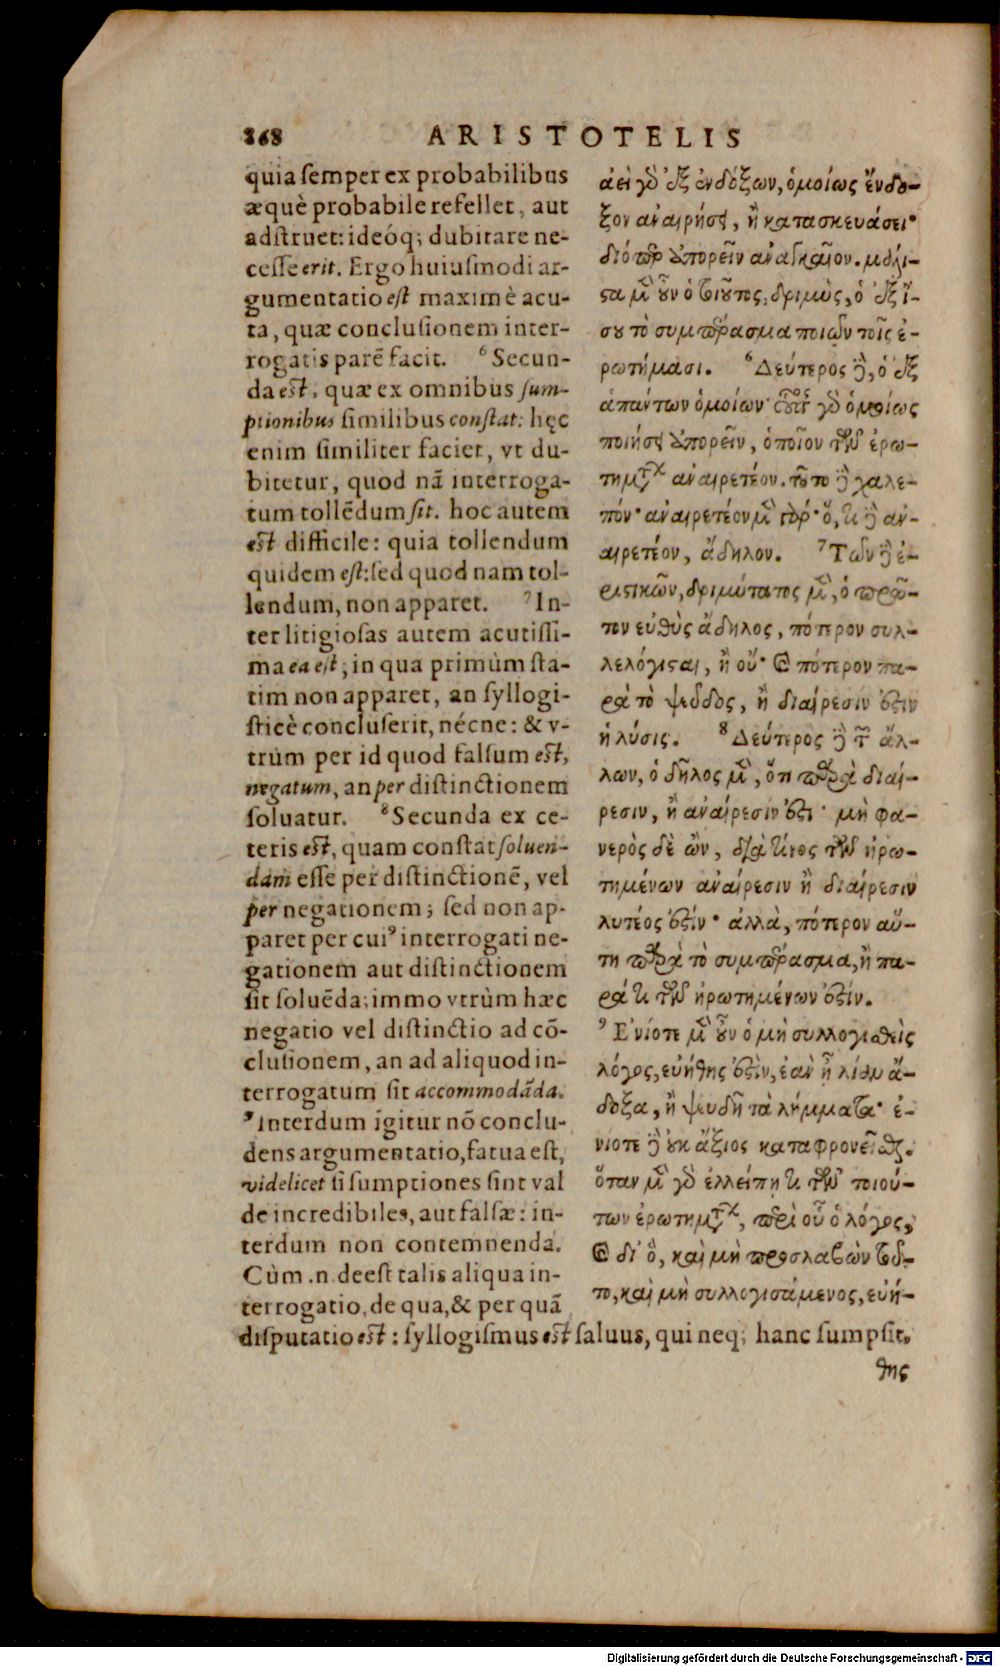 868 ARISTOTELIS
quia semper ex probabilibus
æquè probabile refellet, aut
adstruet: ideóq; dubitare ne-
cesse erit. Ergo huiusmodi ar-
gumentatio est maximè acu-
ta, quæ conclusionem inter-
rogatis parē facit. ⁶Secun-
da est, quæ ex omnibus sum-
ptionibus similibus constat: hęc
enim similiter faciet, vt du-
bitetur, quod nā interroga-
tum tollēdum sit. hoc autem
est difficile: quia tollendum
quidem est: sed quod nam tol-
lendum, non apparet. ⁷In-
ter litigiosas autem acutissi-
ma ea est, in qua primùm sta-
tim non apparet, an syllogi-
sticè concluserit, nécne: & v-
trùm per id quod falsum est,
negatum, an per distinctionem
soluatur. ⁸Secunda ex ce-
teris est, quam constat soluen-
dam esse per distinctionē, vel
per negationem; sed non ap-
paret per cui⁹ interrogati ne-
gationem aut distinctionem
sit soluēda; immo vtrùm hæc
negatio vel distinctio ad cō-
clusionem, an ad aliquod in-
terrogatum sit accommodāda.
⁹Interdum igitur nō conclu-
dens argumentatio, fatua est,
videlicet si sumptiones sint val
de incredibiles, aut falsæ: in-
terdum non contemnenda.
Cùm .n. deest talis aliqua in-
terrogatio, de qua, & per quā
disputatio est: syllogismus est saluus, qui neq; hanc sumpsit,
ἀεὶ γὸ ἐξ ἐνδόξων, ὁμοίως ἔνδο-
ξον ἀναιρήσει, ἢ κατασκευάσει·
διόπερ ἀπορεῖν ἀναγκαῖον. μάλι-
στα μὲν οὖν ὁ τιοῦτος, δριμὺς, ὁ ἐξ ἴ-
σου τὸ συμπέρασμα ποιῶν τοῖς ἐ-
ρωτήμασι. ⁶Δεύτερος δὲ, ὁ ἐξ
ἁπάντων ὁμοίων· οὗτος γὸ ὁμοίως
ποιήσει ἀπορεῖν, ὁποῖον τῶν ἐρω-
τημάτων ἀναιρετέον. τοῦτο δὲ χαλε-
πόν· ἀναιρετέον μὲν γάρ· ὅ,τι δὲ ἀν-
αιρετέον, ἄδηλον. ⁷Τῶν δὲ ἐ-
ριστικῶν, δριμύτατος μὲν, ὁ πρῶ-
τον εὐθὺς ἄδηλος, πότερον συλ-
λελόγισται, ἢ οὔ· καὶ πότερον πα-
ρὰ τὸ ψεῦδος, ἢ διαίρεσίν ἐστιν
ἡ λύσις. ⁸Δεύτερος δὲ τῶν ἄλ-
λων, ὁ δῆλος μὲν, ὅτι παρὰ διαί-
ρεσιν, ἢ ἀναίρεσίν ἐστι· μὴ φα-
νερὸς δὲ ὢν, διὰ τίνος τῶν ἠρω-
τημένων ἀναίρεσιν ἢ διαίρεσιν
λυτέος ἐστίν· ἀλλὰ, πότερον αὕ-
τη παρὰ τὸ συμπέρασμα, ἢ πα-
ρά τι τῶν ἠρωτημένων ἐστίν.
⁹Ἐνίοτε μὲν οὖν ὁ μὴ συλλογισθεὶς
λόγος, εὐήθης ἐστὶν, ἐὰν ᾖ λίαν ἄ-
δοξα, ἢ ψευδῆ τὰ λήμματα· ἐ-
νίοτε δὲ οὐκ ἄξιος καταφρονεῖσθαι.
ὅταν μὲν γὸ ἐλλείπῃ τι τῶν τοιού-
των ἐρωτημάτων, περὶ οὗ ὁ λόγος,
καὶ δι' ὅ, καὶ μὴ προσλαβὼν τοῦ-
το, καὶ μὴ συλλογισάμενος, εὐή-
θης
Digitalisierung gefördert durch die Deutsche Forschungsgemeinschaft - DFG